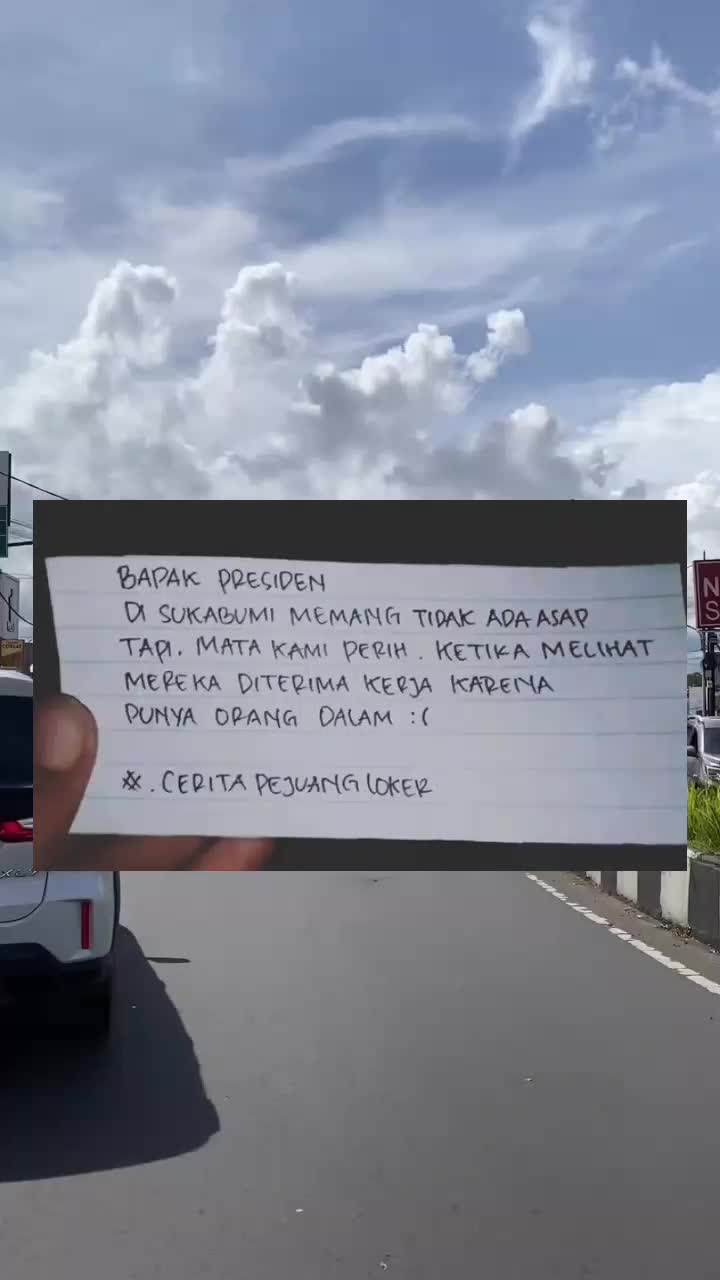 BAPAK PRESIDEN
DI SUKABUMI MEMANG TIDAK ADA ASAP
TAPI. MATA KAMI PERIH. KETIKA MELIHAT
MEREKA DITERIMA KERJA KARENA
PUNYA ORANG DALAM :(
#. CERITA PEJUANG LOKER
N
S